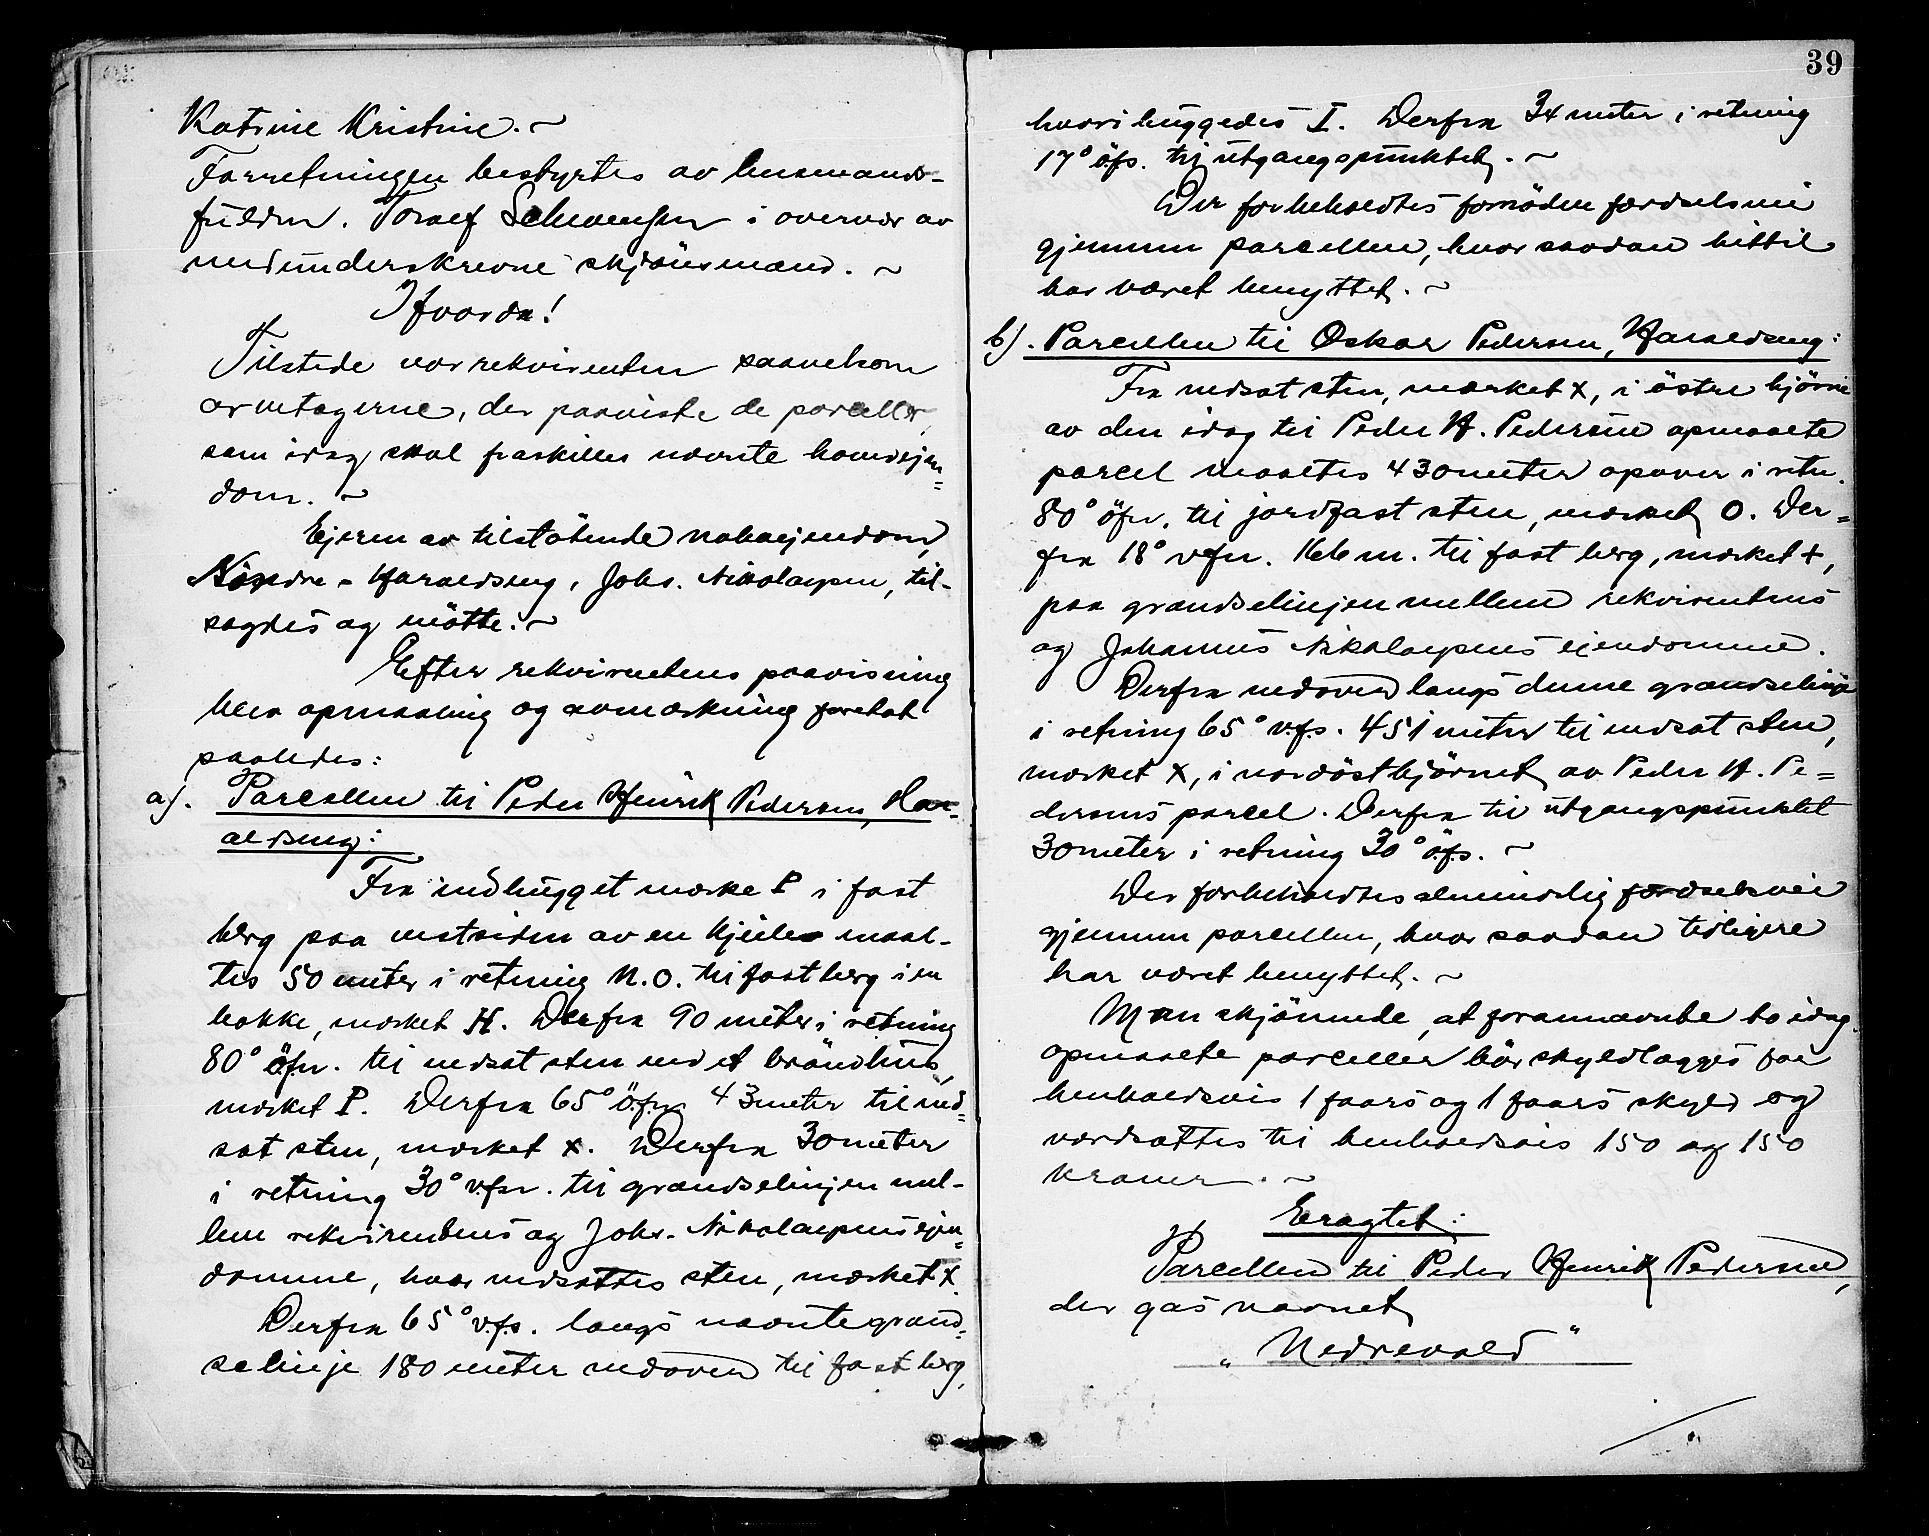 Katrine Kristine. ~
Forretningen bestyrtes av lensmands-
fuldm. Toralf Schwensen i overvær av
medunderskrevne skjönsmænd. ~
Hvorda!
Tilstede var rekvirenten saavelsom
avtagerne, der paaviste de parceller,
som idag skal fraskilles nævnte hovedejen=
dom. ~
Ejeren av tilstötende naboejendom,
Nordre - Haraldseng, Johs. Nikolaysen, til-
sagdes og mötte. ~
Efter rekvirentens paavisning
blev opmaaling og avmerkning foretat
saaledes:
a). Parcellen til Peder Henrik Pedersen, Har-
aldseng:
Fra indhugget merke P i fast
berg paa vestsiden av en kjeile maal-
tes 50 meter i retning N.O. til fast berg i en
bakke, merket H. Derfra 90 meter i retning
80° öfn. til nedsat sten ved et bröndhus,
merket P. Derfra 65° öfn 43 meter til ned=
sat sten, merket x. Derfra 30 meter
i retning 30° vfn. til grændselinjen mel-
lem rekvirentens og Johs. Nikolaysens ejen=
domme, hvor nedsattes sten, merket x.
Derfra 65° v.f.s. langs nævnte grænd=
selinje 180 meter nedover til fast berg,
39
hvori huggedes I. Derfra 34 meter i retning
17° öfs. til utgangspunktet. ~
Der forbeholdtes fornöden færdselsvei
gjennem parcellen, hvor saadan hittil
har været benyttet. ~
b). Parcellen til Oskar Pedersen, Haraldseng:
Fra nedsat sten, merket x, i östre hjörne
av den idag til Peder H. Pedersen opmaalte
parcel maaltes 430 meter opover i retn.
80° öfn. til jordfast sten, merket O. Der=
fra 18° vfn. 166 m. til fast berg, merket +,
paa grændselinjen mellem rekvirentens
og Johannes Nikolaysens eiendomme.
Derfra nedover langs denne grændselinje
i retning 65° v.f.s. 451 meter til nedsat sten,
merket x, i nordösthjörnet av Peder H. Pe=
dersens parcel. Derfra til utgangspunktet
30 meter i retning 30° ö.f.s. ~
Der forbeholdtes almindelig færdselsvei
gjennem parcellen, hvor saadan tidligere
har været benyttet. ~
Man skjönnede, at forannævnte to idag
opmaalte parceller bör skyldlægges for
henholdsvis 1 faars og 1 faars skyld og
værdsattes til henholdsvis 150 og 150
kroner. ~
Eragtet:
Parcellen til Peder Henrik Pedersen,
der gas navnet
"Nedrevold"